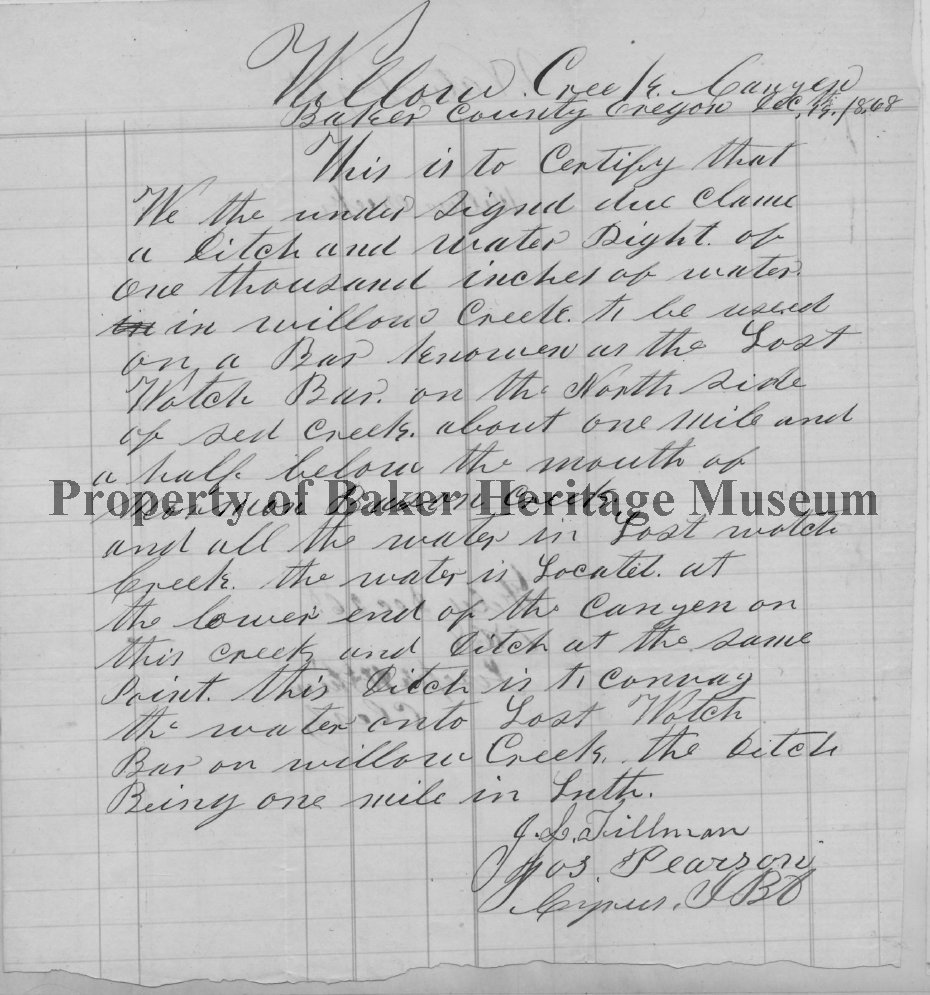 Willow Creek Canyen
Baker County Oregon Dec, 1868
This is to Certify that
We the under signd due clame
a Ditch and water Right. of
one thousand inches of water
in in willow Creek. to be used
on a Bar knowen as the Lost
Wotch Bar. on the North side
of sed Creek. about one mile and
a half below the mouth of
Mormon Creek.
Property of Baker Heritage Museum
and all the water in Lost wotch
Creek. the water is Locatd. at
the lower end of the Canyen on
this creek and Ditch at the same
Point. this Ditch is to convay
the water onto Lost Wotch
Bar on willow Creek. the Ditch
Being one mile in Lnth.
J. L. Tillman
Jos. Pearson
Cyrus.